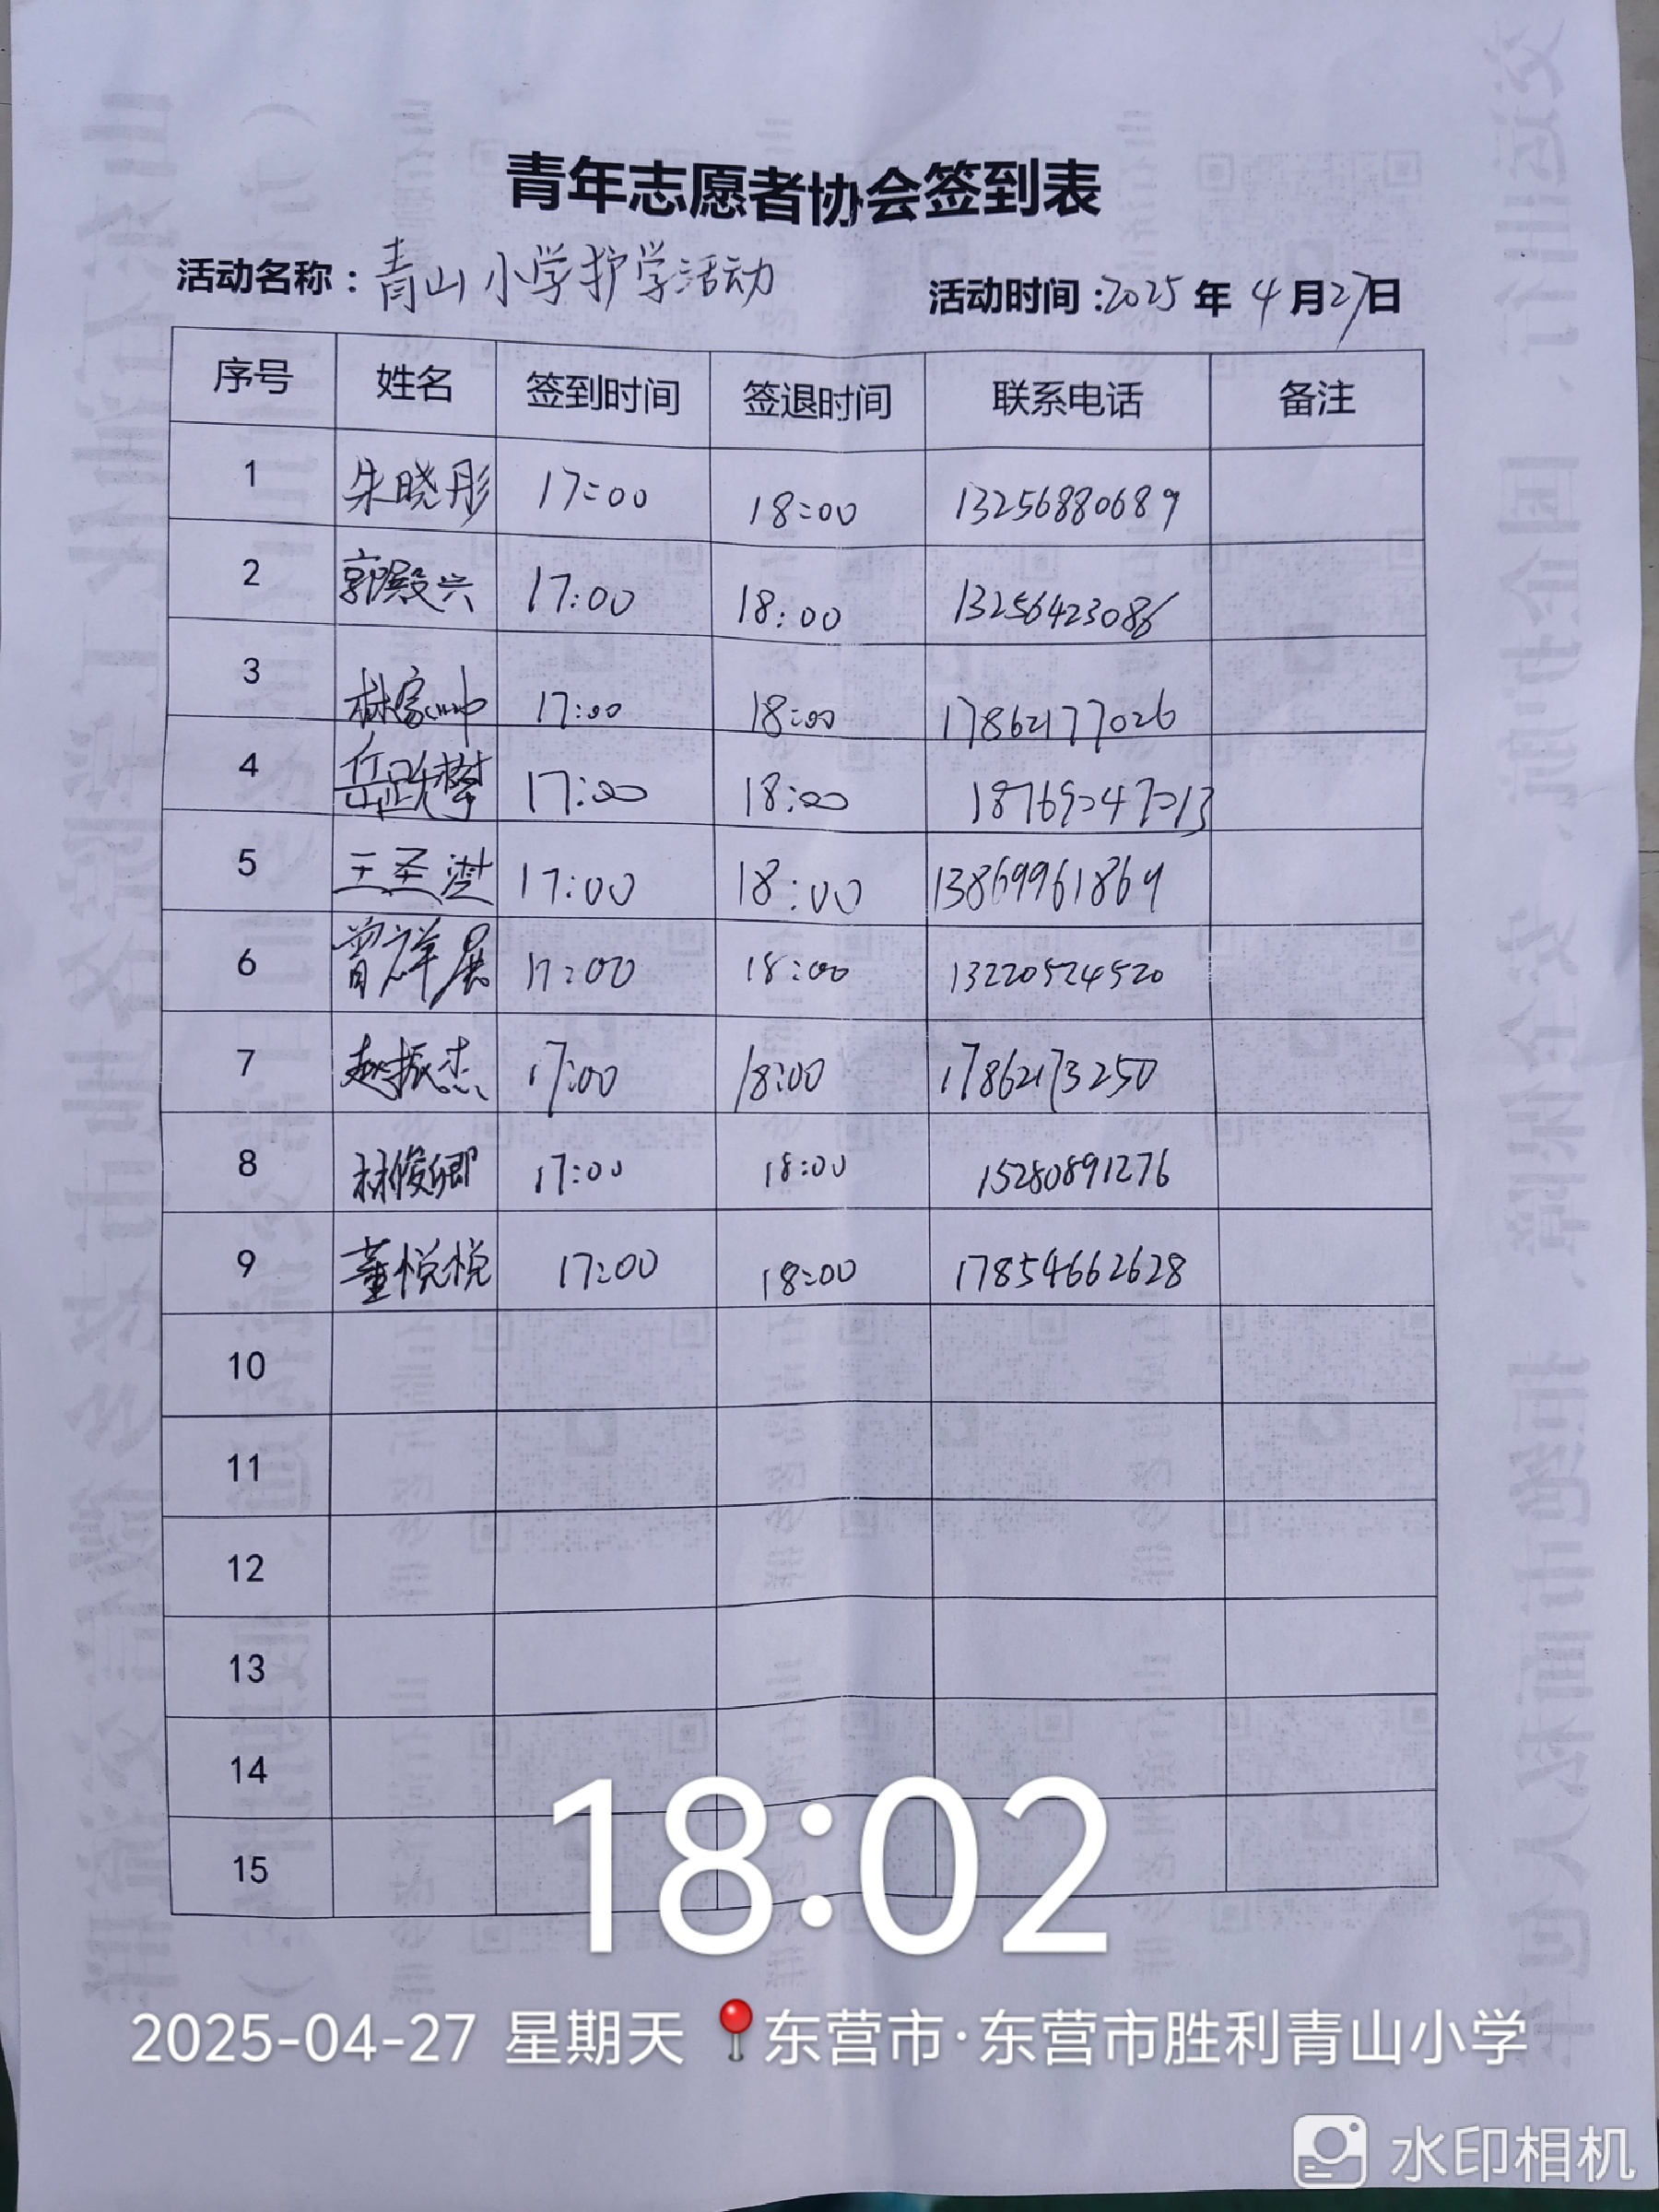 青年志愿者协会签到表
活动名称：青山小学护学活动 活动时间：2025年4月27日
序号 姓名 签到时间 签退时间 联系电话 备注
1 朱晓彤 17:00 18:00 13256880689
2 郭殿兴 17:00 18:00 13256423086
3 林家 17:00 18:00 17862177026
4 岳跃攀 17:00 18:00 18769247213
5 王圣 17:00 18:00 13869961869
6 曾祥展 17:00 18:00 13220524520
7 赵振杰 17:00 18:00 17862173250
8 林俊卿 17:00 18:00 15280891276
9 董悦悦 17:00 18:00 17854662628
10
11
12
13
14
15
18:02
2025-04-27 星期天 东营市·东营市胜利青山小学
水印相机